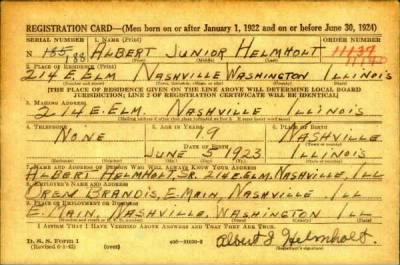 REGISTRATION CARD—(Men born on or after January 1, 1922 and on or before June 30, 1924)
SERIAL NUMBER 1. NAME (Print) ORDER NUMBER
N 185 88 ALBERT JUNIOR HELMHOLT
(First) (Middle) (Last)
2. PLACE OF RESIDENCE (Print)
214 E. ELM NASHVILLE WASHINGTON ILLINOIS
[THE PLACE OF RESIDENCE GIVEN ON THE LINE ABOVE WILL DETERMINE LOCAL BOARD
JURISDICTION; LINE 2 OF REGISTRATION CERTIFICATE WILL BE IDENTICAL]
3. MAILING ADDRESS
214 E. ELM, NASHVILLE ILLINOIS
4. TELEPHONE 5. AGE IN YEARS 6. PLACE OF BIRTH
NONE 19 NASHVILLE
DATE OF BIRTH
JUNE 1923 ILLINOIS
7. NAME AND ADDRESS OF PERSON WHO WILL ALWAYS KNOW YOUR ADDRESS
ALBERT HELMHOLT, SR. 214 E. ELM, NASHVILLE, ILL
8. EMPLOYER'S NAME AND ADDRESS
BRANDIS, E-MAIN, NASHVILLE ILL
9. PLACE OF EMPLOYMENT OR BUSINESS
E. MAIN, NASHVILLE, WASHINGTON ILL
I AFFIRM THAT I HAVE VERIFIED ABOVE ANSWERS AND THAT THEY ARE TRUE.
D. S. S. Form 1
(over)
Albert J Helmholt.
(Registrant's signature)